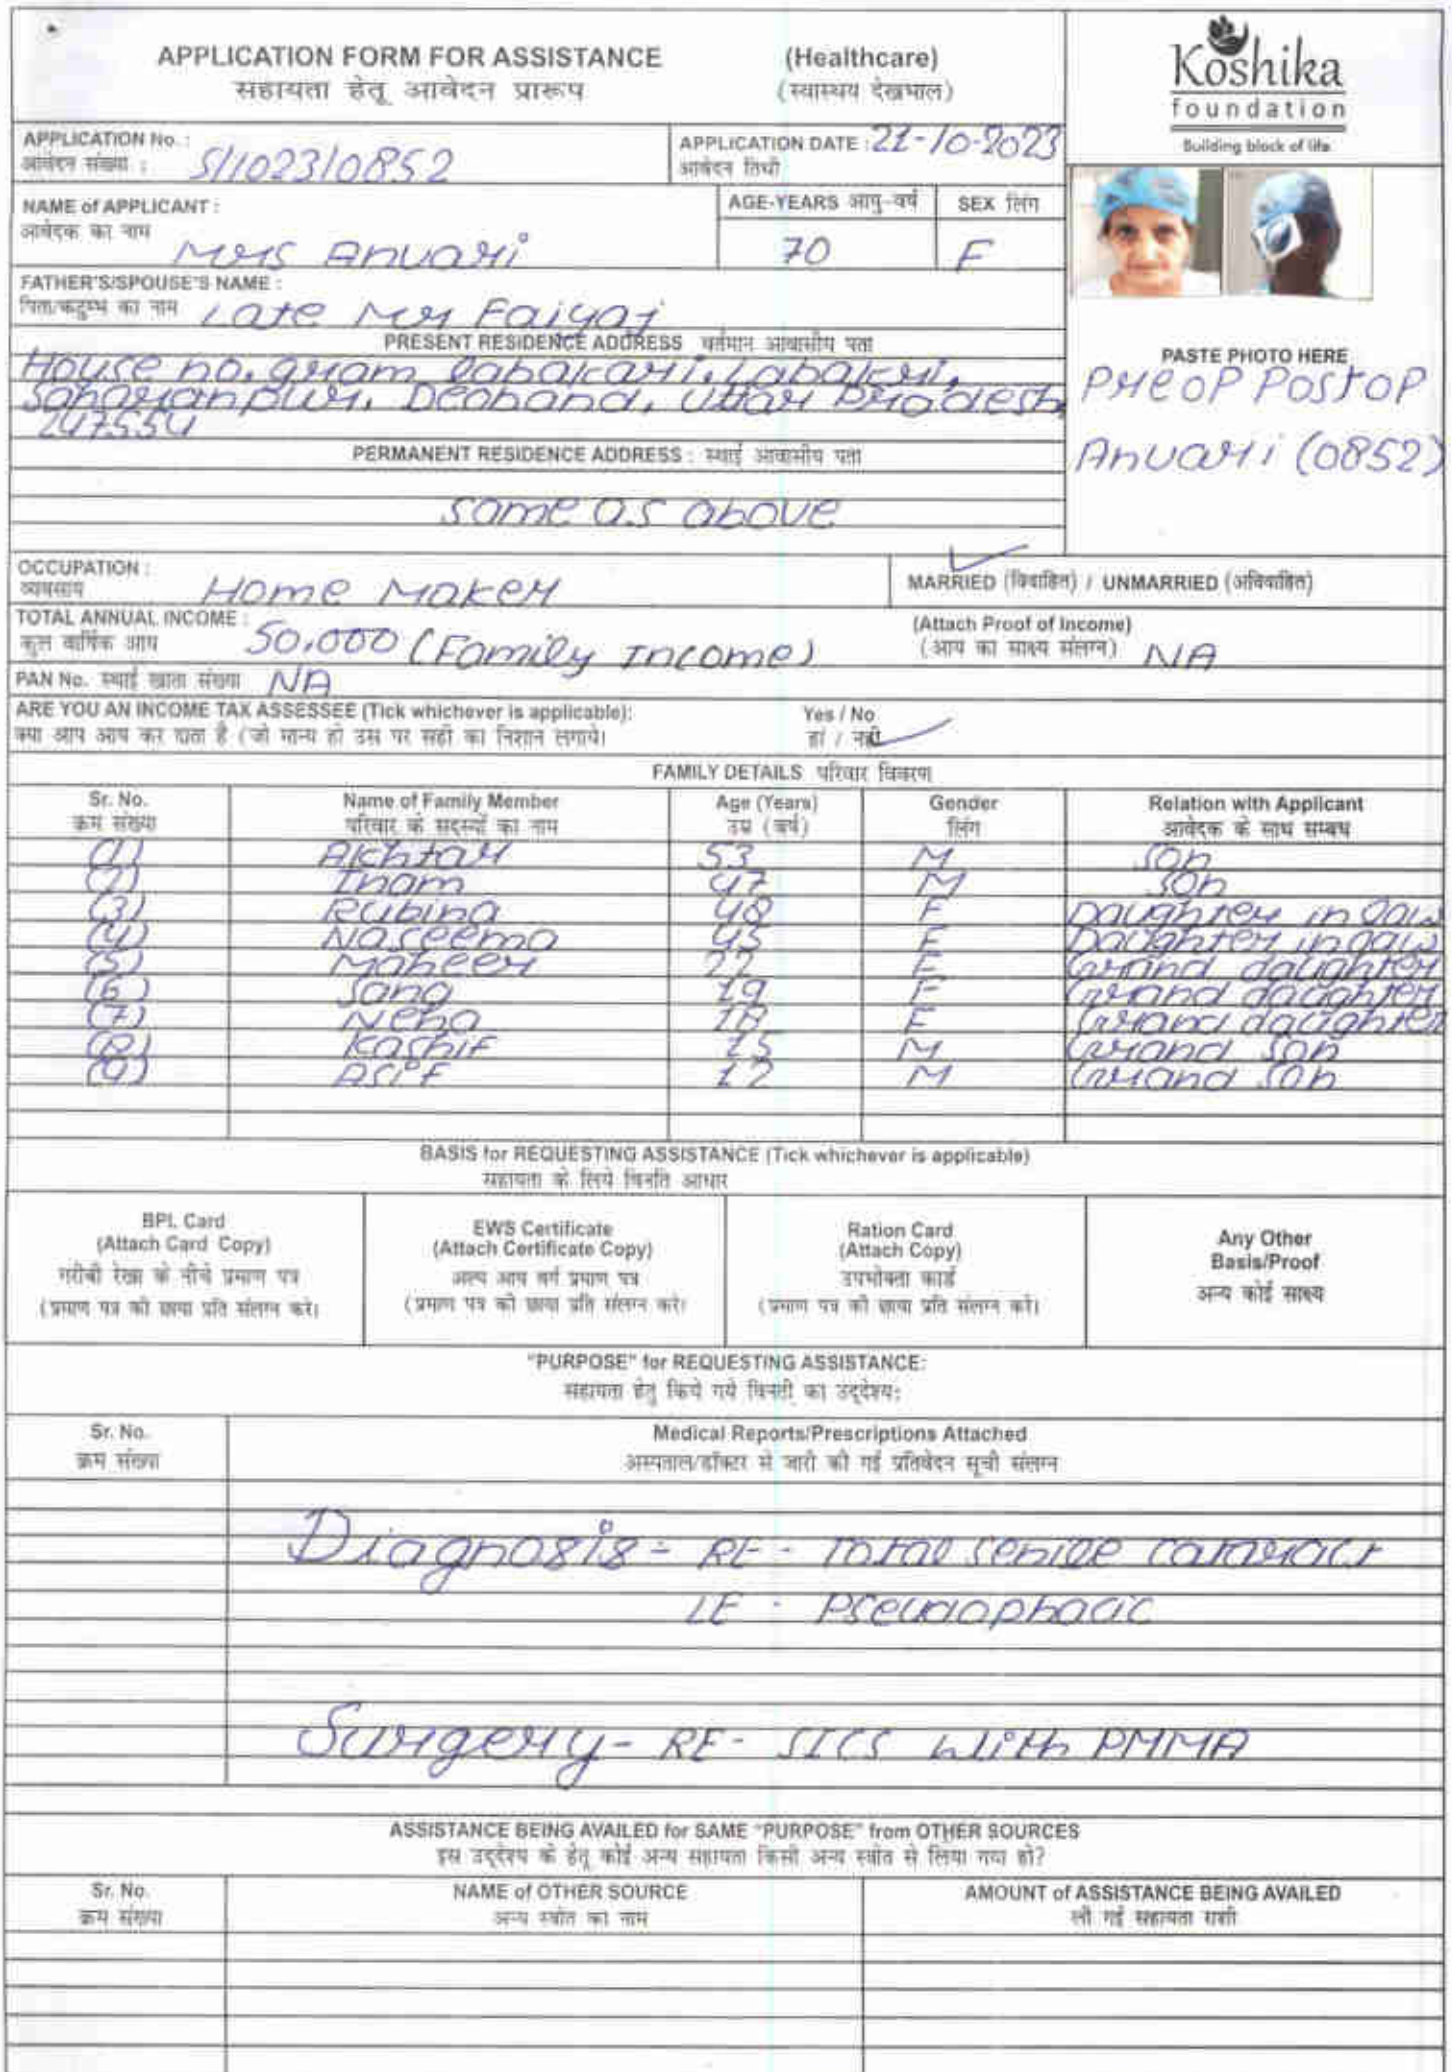 APPLICATION FORM FOR ASSISTANCE (Healthcare)
सहायता हेतू आवेदन प्रारूप (स्वास्थय देखभाल)
Koshika
foundation
Building block of life
APPLICATION No. : S/1023/0852
आवेदन संख्या :
APPLICATION DATE : 21-10-2023
आवेदन तिथी
NAME of APPLICANT : Mrs Anuari
आवेदक का नाम
AGE-YEARS आयु-वर्ष 70
SEX लिंग F
FATHER'S/SPOUSE'S NAME : Late Mr Faiyaj
पिता/कटुम्भ का नाम
PRESENT RESIDENCE ADDRESS वर्तमान आवासीय पता
House no. gram labakari, Labakri,
Saharanpur, Deoband, Uttar Pradesh
247554
PASTE PHOTO HERE
PreOP PostOP
Anuari (0852)
PERMANENT RESIDENCE ADDRESS : स्थाई आवासीय पता
same as above
OCCUPATION : Home Maker
व्यवसाय
MARRIED (विवाहित) / UNMARRIED (अविवाहित)
TOTAL ANNUAL INCOME : 50,000 (Family Income)
कुल वार्षिक आय
(Attach Proof of Income)
(आय का साक्ष्य संलग्न) NA
PAN No. स्थाई खाता संख्या NA
ARE YOU AN INCOME TAX ASSESSEE (Tick whichever is applicable): Yes / No
क्या आप आय कर दाता है (जो मान्य हो उस पर सही का निशान लगाये। हां / नहीं
FAMILY DETAILS परिवार विवरण
Sr. No. Name of Family Member Age (Years) Gender Relation with Applicant
क्रम संख्या परिवार के सदस्यों का नाम उम्र (वर्ष) लिंग आवेदक के साथ सम्बध
(1) Akhtar 53 M Son
(2) Inam 47 M Son
(3) Rubina 48 F Daughter in law
(4) Naseema 45 F Daughter in law
(5) Maheer 22 F Grand daughter
(6) Sana 19 F Grand daughter
(7) Neha 18 F Grand daughter
(8) Kashif 15 M Grand son
(9) Asif 12 M Grand son
BASIS for REQUESTING ASSISTANCE (Tick whichever is applicable)
सहायता के लिये विनति आधार
BPL Card
(Attach Card Copy)
गरीबी रेखा के नीचे प्रमाण पत्र
(प्रमाण पत्र की छाया प्रति संलग्न करे।
EWS Certificate
(Attach Certificate Copy)
अल्प आय वर्ग प्रमाण पत्र
(प्रमाण पत्र की छाया प्रति संलग्न करे।
Ration Card
(Attach Copy)
उपभोक्ता कार्ड
(प्रमाण पत्र की छाया प्रति संलग्न करे।
Any Other
Basis/Proof
अन्य कोई साक्ष्य
"PURPOSE" for REQUESTING ASSISTANCE:
सहायता हेतु किये गये विनती का उद्देश्य:
Sr. No. Medical Reports/Prescriptions Attached
क्रम संख्या अस्पताल/डॉक्टर से जारी की गई प्रतिवेदन सूची संलग्न
Diagnosis - RE - Total senile cataract
LE - Pseudophacic
Surgery - RE - SICS with PMMA
ASSISTANCE BEING AVAILED for SAME "PURPOSE" from OTHER SOURCES
इस उद्देश्य के हेतू कोई अन्य सहायता किसी अन्य स्त्रोत से लिया गया हो?
Sr. No. NAME of OTHER SOURCE AMOUNT of ASSISTANCE BEING AVAILED
क्रम संख्या अन्य स्त्रोत का नाम ली गई सहायता राशी